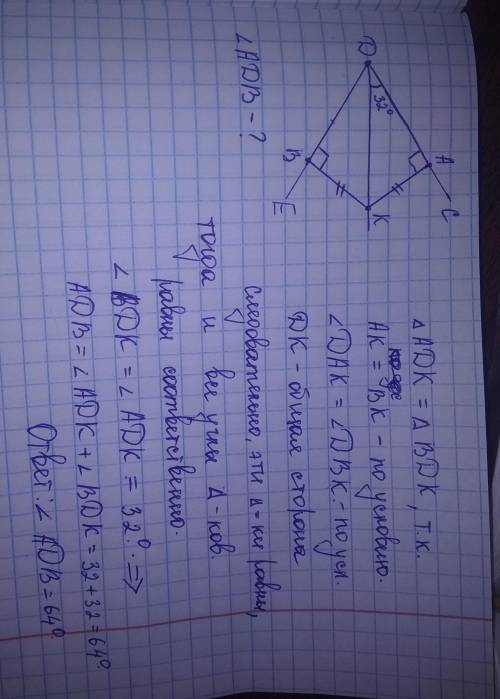 D
32°
A
C
K
B
E
∠ADB - ?
△ADK = △BDK, т.к.
AK = BK - по условию.
∠DAK = ∠DBK - по усл.
DK - общая сторона
следовательно, эти △-ки равны,
тогда и все углы △-ков.
равны соответственно.
∠BDK = ∠ADK = 32°. ⇒
ADB = ∠ADK + ∠BDK = 32 + 32 = 64°.
Ответ: ∠ADB = 64°.